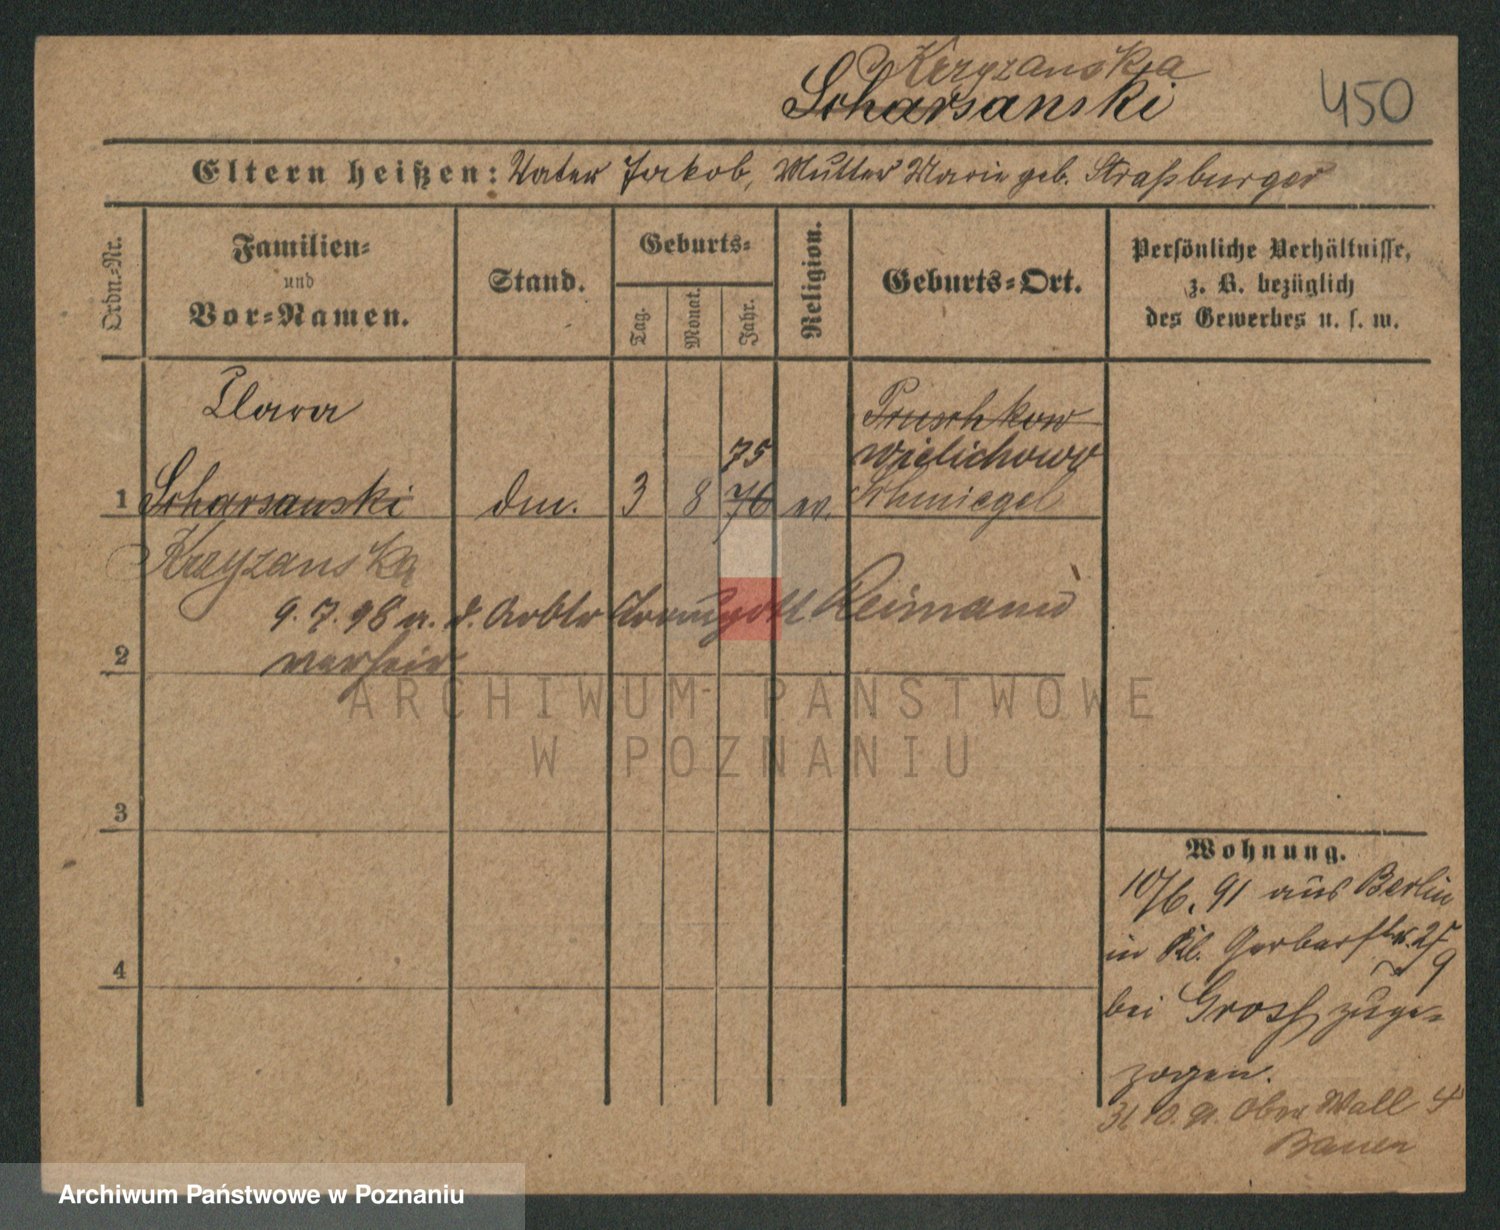 Krzyzanska
Scharsanski
450
Eltern heißen: Vater Jakob, Mutter Marie geb. Straßburger
Ordn.=Nr.
Familien=
und
Vor=Namen.
Stand.
Geburts=
Tag.
Monat.
Jahr.
Religion.
Geburts=Ort.
Persönliche Verhältnisse,
z. B. bezüglich
des Gewerbes u. s. w.
Clara
Pruschkow
75
Wielichowo
1 Scharsanski 3 8 76 Schmiegel
Krzyzanska
9. 7. 98 m. d. Arbtr Traugott Reimann
2 verheir
3
4
Wohnung.
10/6. 91 aus Berlin
in Kl. Gerberstr. 25
9
bei Grosß zuge=
zogen.
31 10. 91. Obern Wall 4
Bauer
ARCHIWUM PAŃSTWOWE
W POZNANIU
Archiwum Państwowe w Poznaniu